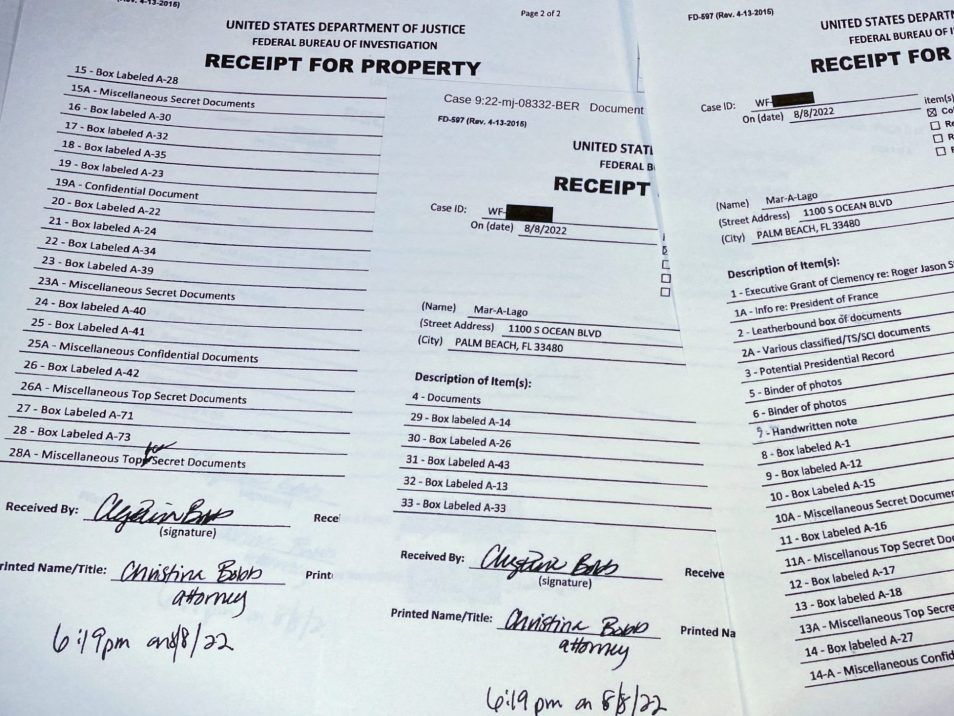 4-13-2015)
Page 2 of 2
UNITED STATES DEPARTMENT OF JUSTICE
FEDERAL BUREAU OF INVESTIGATION
RECEIPT FOR PROPERTY
15 - Box Labeled A-28
15A - Miscellaneous Secret Documents
16 - Box labeled A-30
17 - Box labeled A-32
18 - Box labeled A-35
19 - Box labeled A-23
19A - Confidential Document
20 - Box Labeled A-22
21 - Box labeled A-24
22 - Box Labeled A-34
23 - Box Labeled A-39
23A - Miscellaneous Secret Documents
24 - Box Labeled A-40
25 - Box Labeled A-41
25A - Miscellaneous Confidential Documents
26 - Box Labeled A-42
26A - Miscellaneous Top Secret Documents
27 - Box Labeled A-71
28 - Box Labeled A-73
28A - Miscellaneous Top Secret Documents
Received By:
(signature)
Rece
rinted Name/Title: Christina Bobb
Print
attorney
6:19pm on 8/8/22
Case 9:22-mj-08332-BER Document
FD-597 (Rev. 4-13-2015)
UNITED STATE
FEDERAL B
RECEIPT
Case ID: WF-
On (date) 8/8/2022
(Name) Mar-A-Lago
(Street Address) 1100 S OCEAN BLVD
(City) PALM BEACH, FL 33480
Description of Item(s):
4 - Documents
29 - Box labeled A-14
30 - Box Labeled A-26
31 - Box Labeled A-43
32 - Box Labeled A-13
33 - Box Labeled A-33
Received By:
(signature)
Receive
Printed Name/Title: Christina Bobb
Printed Na
attorney
6:19 pm on 8/8/22
FD-597 (Rev. 4-13-2015)
UNITED STATES DEPARTM
FEDERAL BUREAU OF I
RECEIPT FOR
Case ID: WF-
On (date) 8/8/2022
item(s)
Co
Re
R
(Name) Mar-A-Lago
(Street Address) 1100 S OCEAN BLVD
(City) PALM BEACH, FL 33480
Description of Item(s):
1 - Executive Grant of Clemency re: Roger Jason S
1A - Info re: President of France
2 - Leatherbound box of documents
2A - Various classified/TS/SCI documents
3 - Potential Presidential Record
5 - Binder of photos
6 - Binder of photos
7 - Handwritten note
8 - Box labeled A-1
9 - Box labeled A-12
10 - Box Labeled A-15
10A - Miscellaneous Secret Documen
11 - Box Labeled A-16
11A - Miscellanous Top Secret Do
12 - Box labeled A-17
13 - Box labeled A-18
13A - Miscellaneous Top Secre
14 - Box labeled A-27
14-A - Miscellaneous Confid